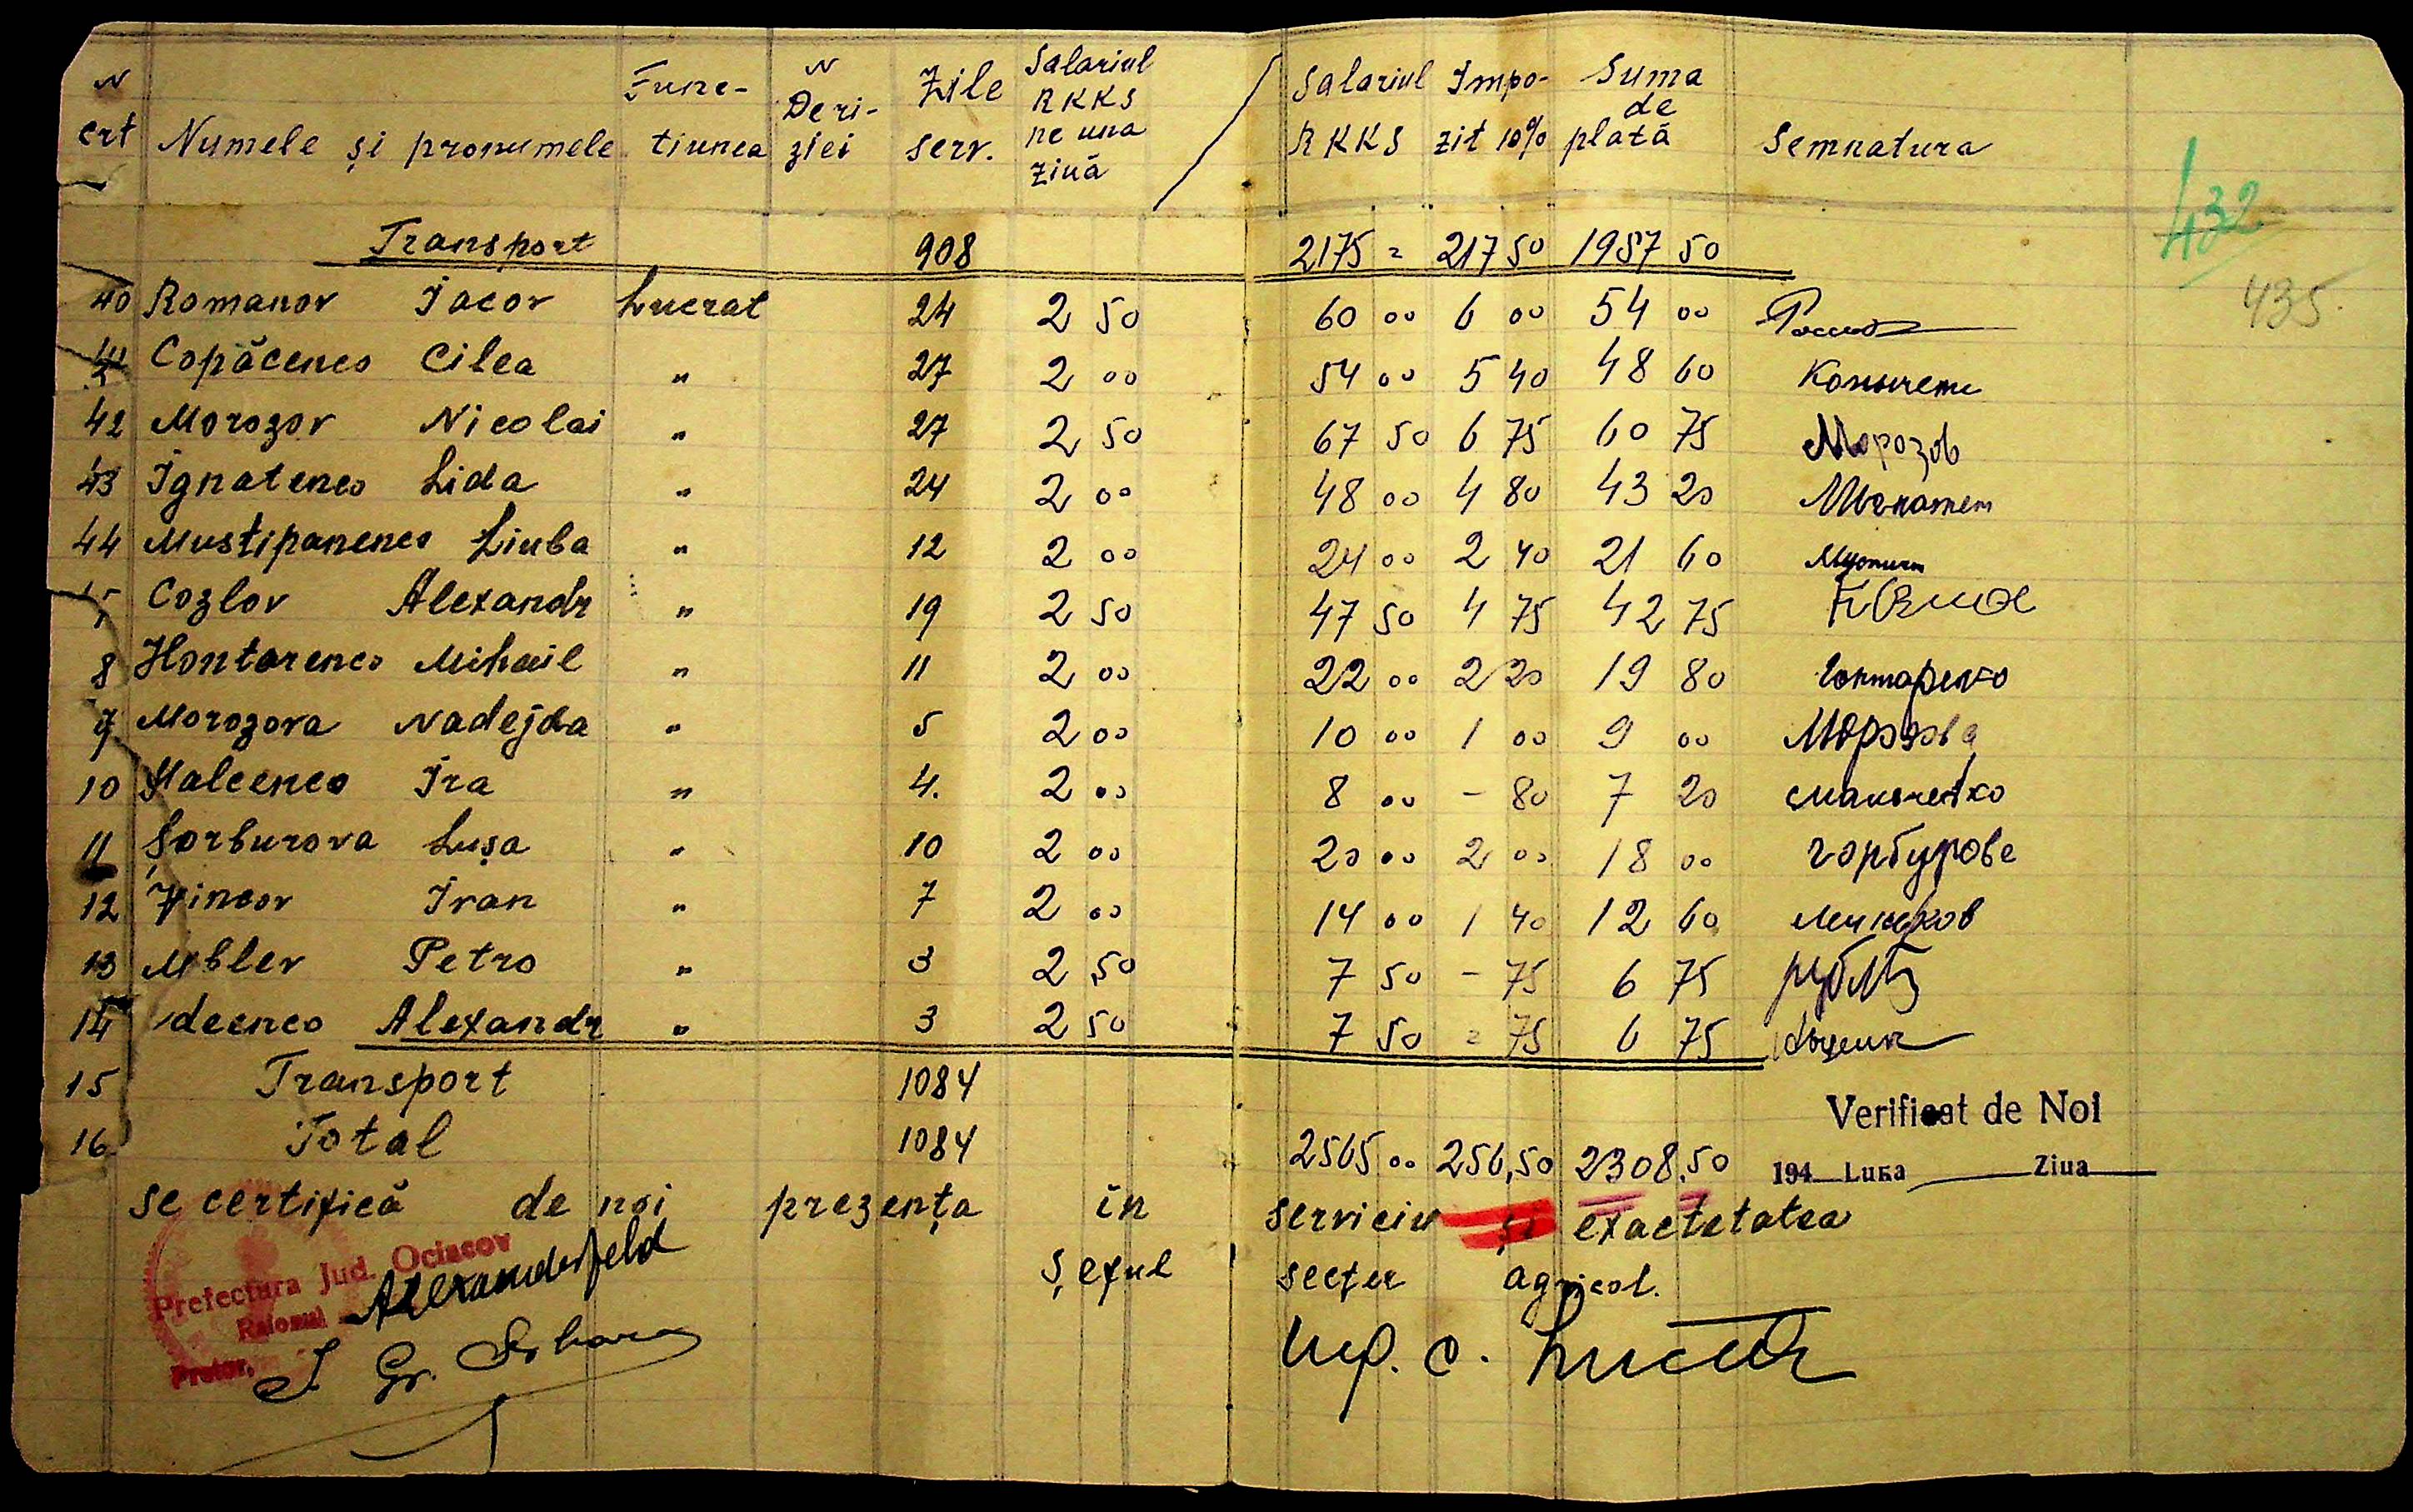 N crt Numele și pronumele Func- tiunea N Deri- ziei Zile serv. Salariul RKKS pe una ziuă Salariul RKKS Impo- zit 10% Suma de plată Semnatura
432
435
Transport 908 2175 = 217 50 1957 50
40 Romanov Iacov Lucrat 24 2 50 60 00 6 00 54 00
41 Copăcenco Cilea " 27 2 00 54 00 5 40 48 60
42 Morozov Nicolai " 27 2 50 67 50 6 75 60 75 Морозов
43 Ignatenco Lida " 24 2 00 48 00 4 80 43 20
44 Mustipanenco Liuba " 12 2 00 24 00 2 40 21 60
Cozlov Alexandr " 19 2 50 47 50 4 75 42 75
8 Hontarenco Mihail " 11 2 00 22 00 2 20 19 80 Гонтаренко
9 Morozova Nadejda " 5 2 00 10 00 1 00 9 00 Морозова
10 Ira " 4. 2 00 8 00 - 80 7 20
11 Șorburova Lușa " 10 2 00 20 00 2 00 18 00 горбурове
12 Ivan " 7 2 00 14 00 1 40 12 60
13 Petro " 3 2,50 7 50 - 75 6 75
14 Alexandr " 3 2 50 7 50 = 75 6 75
15 Transport 1084
16 Total 1084 2565 00 256,50 2308,50
Verificat de Noi
194 Luna Ziua
se certifică de noi prezența în serviciu și exactetatea
Șeful secției agricol.
Prefectura Jud. Ociacov
Raionul Alexanderfeld
Pretor,